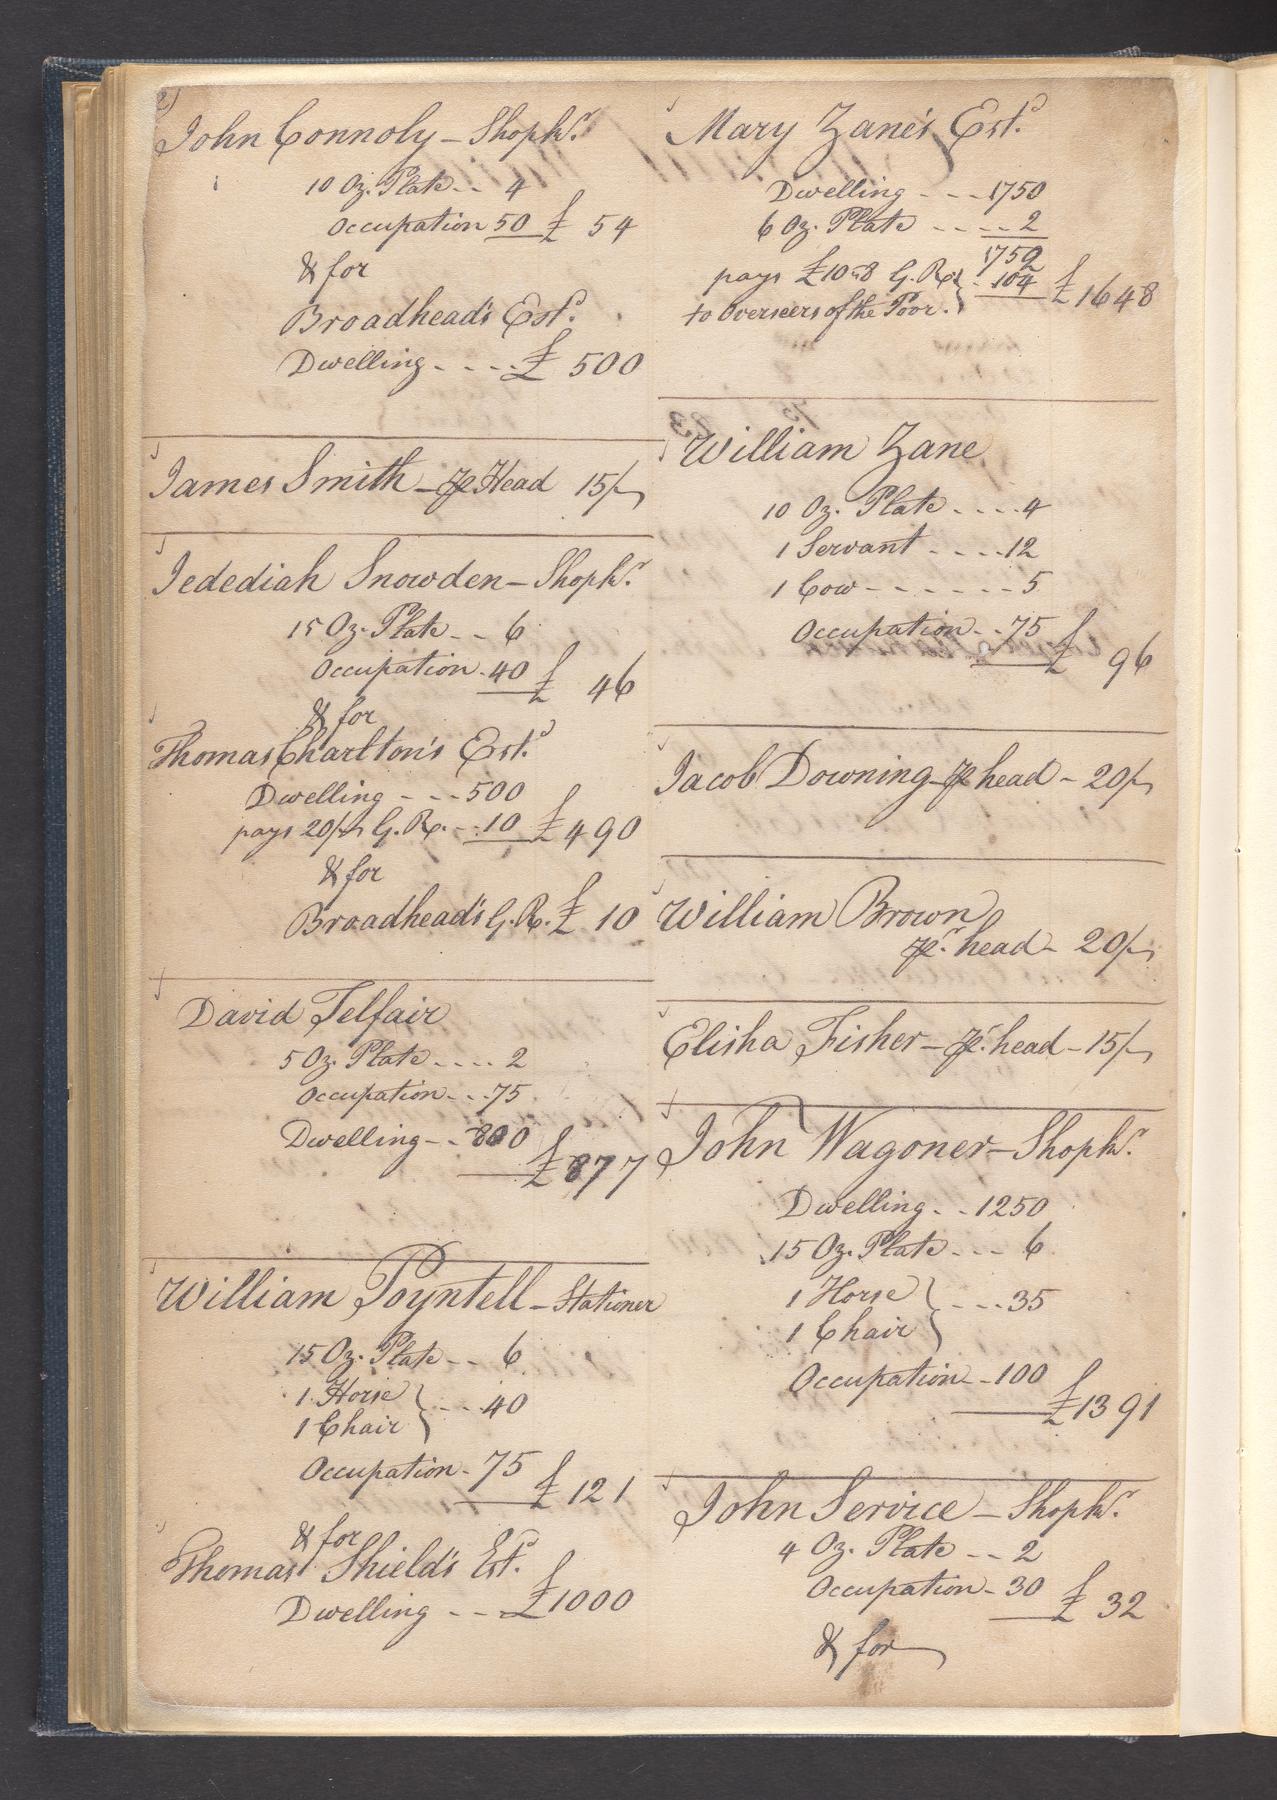 2)
John Connoly - Shopkr.
10 Oz. Plate - - 4
Occupation 50 £ 54
& for
Broadhead's Estd.
Dwelling - - - - £ 500
James Smith - pr Head 15/-
Jedediah Snowden - Shopkr.
15 Oz. Plate - - 6
Occupation - 40 £ 46
& for
Thomas Charlton's Estd.
Dwelling - - - 500
pays 20/- G. R. - - 10 £ 490
& for
Broadhead's G. R. £ 10
David Telfair
5 Oz. Plate - - - - 2
Occupation - - - 75
Dwelling - - 800
£ 877
William Poyntell - Stationer
15 Oz. Plate - - 6
1 Horse
1 Chair } - - - 40
Occupation - 75
£ 121
& for
Thomas Shield's Estd.
Dwelling - - - £ 1000
Mary Zane's Estd.
Dwelling - - - 1750
6 Oz. Plate - - - - 2
1752
pays £10 " 8 G. Rt } - 104 £ 1648
to Overseers of the Poor.
William Zane
10 Oz. Plate - - - - 4
1 Servant - - - - 12
1 Cow - - - - - - - 5
Occupation - - 75 £ 96
Jacob Downing - pr head - 20/-
William Brown
pr. head - 20/-
Elisha Fisher - pr. head - 15/-
John Wagoner - Shopkr.
Dwelling - - 1250
15 Oz. Plate - - - 6
1 Horse
1 Chair } - - - 35
Occupation - 100
£ 1391
John Service - Shopkr.
4 Oz. Plate - - 2
Occupation - 30 £ 32
& for